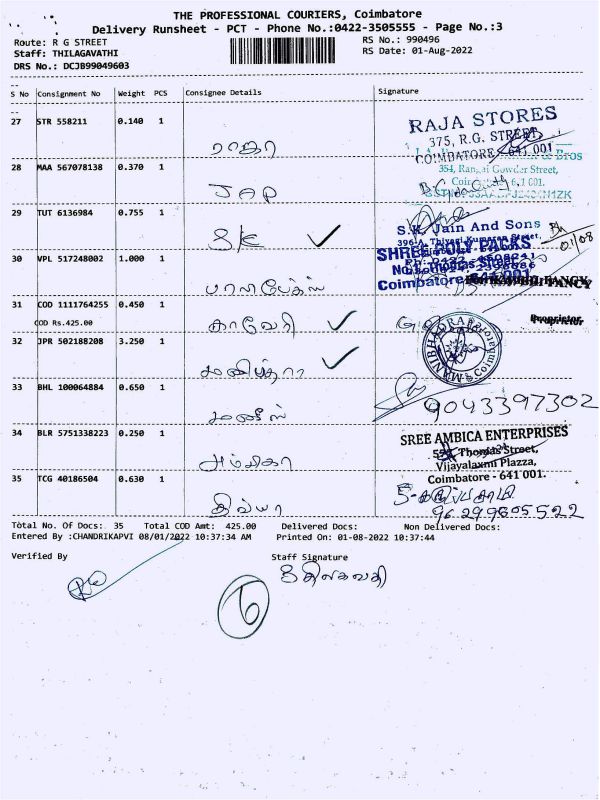 THE PROFESSIONAL COURIERS, Coimbatore
Delivery Runsheet - PCT - Phone No.:0422-3505555 - Page No.:3
Route: R G STREET
RS No.: 990496
Staff: THILAGAVATHI
RS Date: 01-Aug-2022
DRS No.: DCJB99049603
S No Consignment No Weight PCS Consignee Details Signature
27 STR 558211 0.140 1 ராஜா
RAJA STORES
375, R.G. STREET,
COIMBATORE - 641 001
28 MAA 567078138 0.370 1 JAP
& BROS
354, Rangai Gowder Street,
29 TUT 6136984 0.755 1 SK ✓
S.K. Jain And Sons
396-A, Thiyagi Kumaran Street,
30 VPL 517248002 1.000 1 பாலிபேக்ஸ்
SHREE POLY PACKS
Thomas Street
Coimbatore-641 001
01/08
FANCY
31 COD 1111764255 0.450 1 காவேரி ✓
COD Rs.425.00
Proprietor
32 JPR 502188208 3.250 1 மணிபத்ரா ✓
MANIBHADRA
Coimbatore
33 BHL 100064884 0.650 1
9043397302
34 BLR 5751338223 0.250 1 அம்பிகா
SREE AMBICA ENTERPRISES
Thomas Street,
Vijayalaxmi Plazza,
Coimbatore - 641 001.
35 TCG 40186504 0.630 1 திவ்யா
96299805522
Total No. Of Docs: 35 Total COD Amt: 425.00 Delivered Docs: Non Delivered Docs:
Entered By :CHANDRIKAPVI 08/01/2022 10:37:34 AM Printed On: 01-08-2022 10:37:44
Verified By
Staff Signature
திலகவதி
6